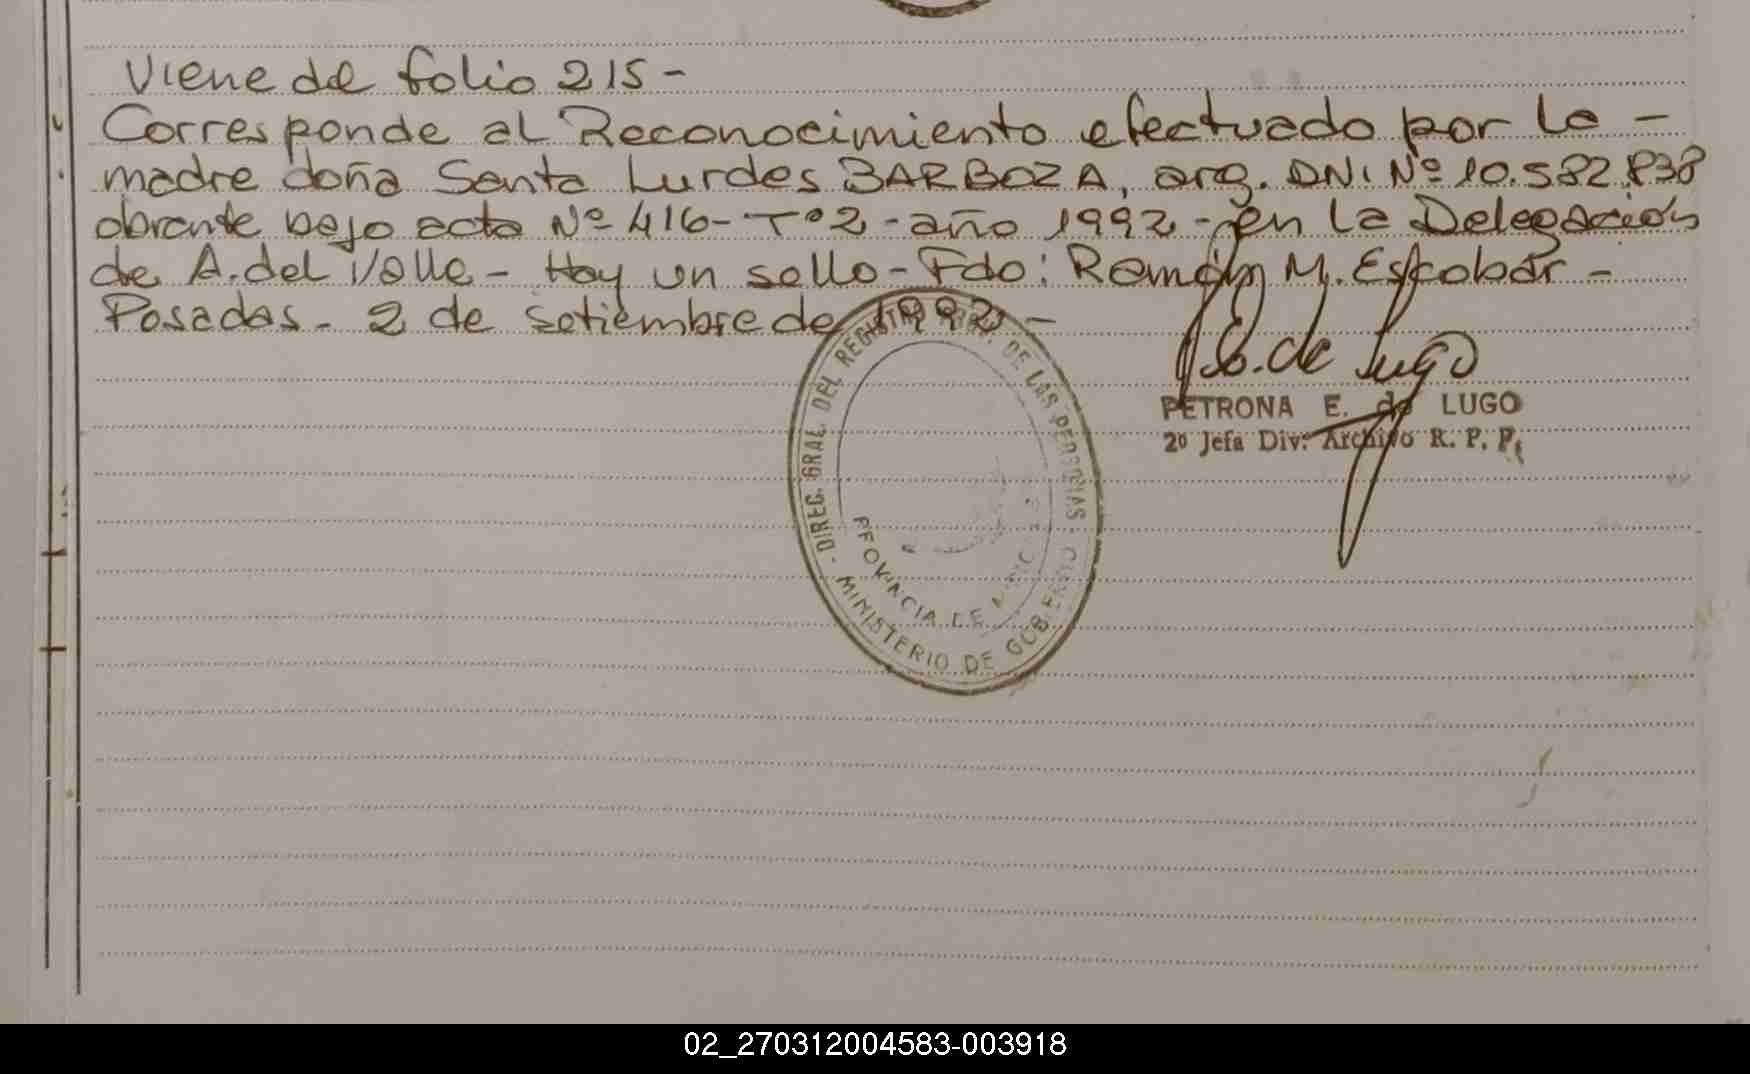 Viene del folio 215 -
Corresponde al Reconocimiento efectuado por la -
madre doña Santa Lurdes BARBOZA, arg. DNI Nº 10.582.838
obrante bajo acta Nº 416 - Tº 2 - año 1992 - en la Delegación
de A. del Valle - Hay un sello - Fdo: Ramón M. Escobar -
Posadas - 2 de setiembre de 1992 -
E. de Lugo
PETRONA E. de LUGO
2º Jefa Div. Archivo R. P. P.
DIREC. GRAL. DEL REGISTRO DE LAS PERSONAS
PROVINCIA DE MISIONES
MINISTERIO DE GOBIERNO
02_270312004583-003918